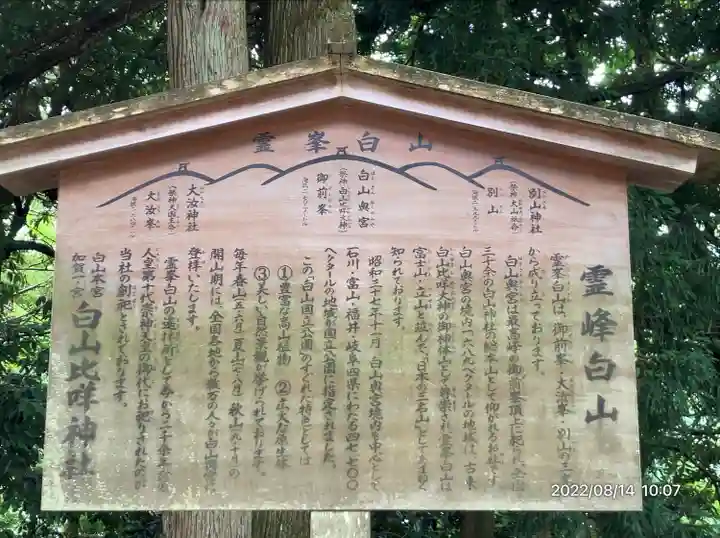 霊峯白山
別山神社
(祭神 大山祇命)
別山
白山奥宮
(祭神 白山比咩大神)
御前峯
大汝神社
(祭神 大国主命)
大汝峯
霊峰白山
霊峯白山は、御前峯・大汝峯・別山の三山
から成り立っております。
白山奥宮は最高峰の御前峯頂上に祀られ、全国
三千余の白山神社の総本山として仰がれるお社です。
白山奥宮の境内一六八九ヘクタールの地域は、古来
白山比咩大神の御神体として尊崇され、霊峯白山は
富士山・立山と並んで、日本の三名山としてあまねく
知られております。
昭和三十七年十一月、白山奥宮境内を中心として、
石川・富山・福井・岐阜四県にわたる四七七〇〇
ヘクタールの地域が国立公園に指定されました。
この「白山国立公園」のすぐれた特色としては
①豊富な高山植物 ②広大な原生林
③美しい自然景観が挙げられております。
毎年春山(五・六月)夏山(七・八月)秋山(九・十月)の
開山期には、全国各地から数万の人々が白山国立に
登拝いたします。
霊峯白山の遥拝所として今から二千余年
人皇第十代崇神天皇の御代にお祀りされたのが
当社の創祀とされております。
白山本宮
加賀一ノ宮
白山比咩神社
2022/08/14 10:07